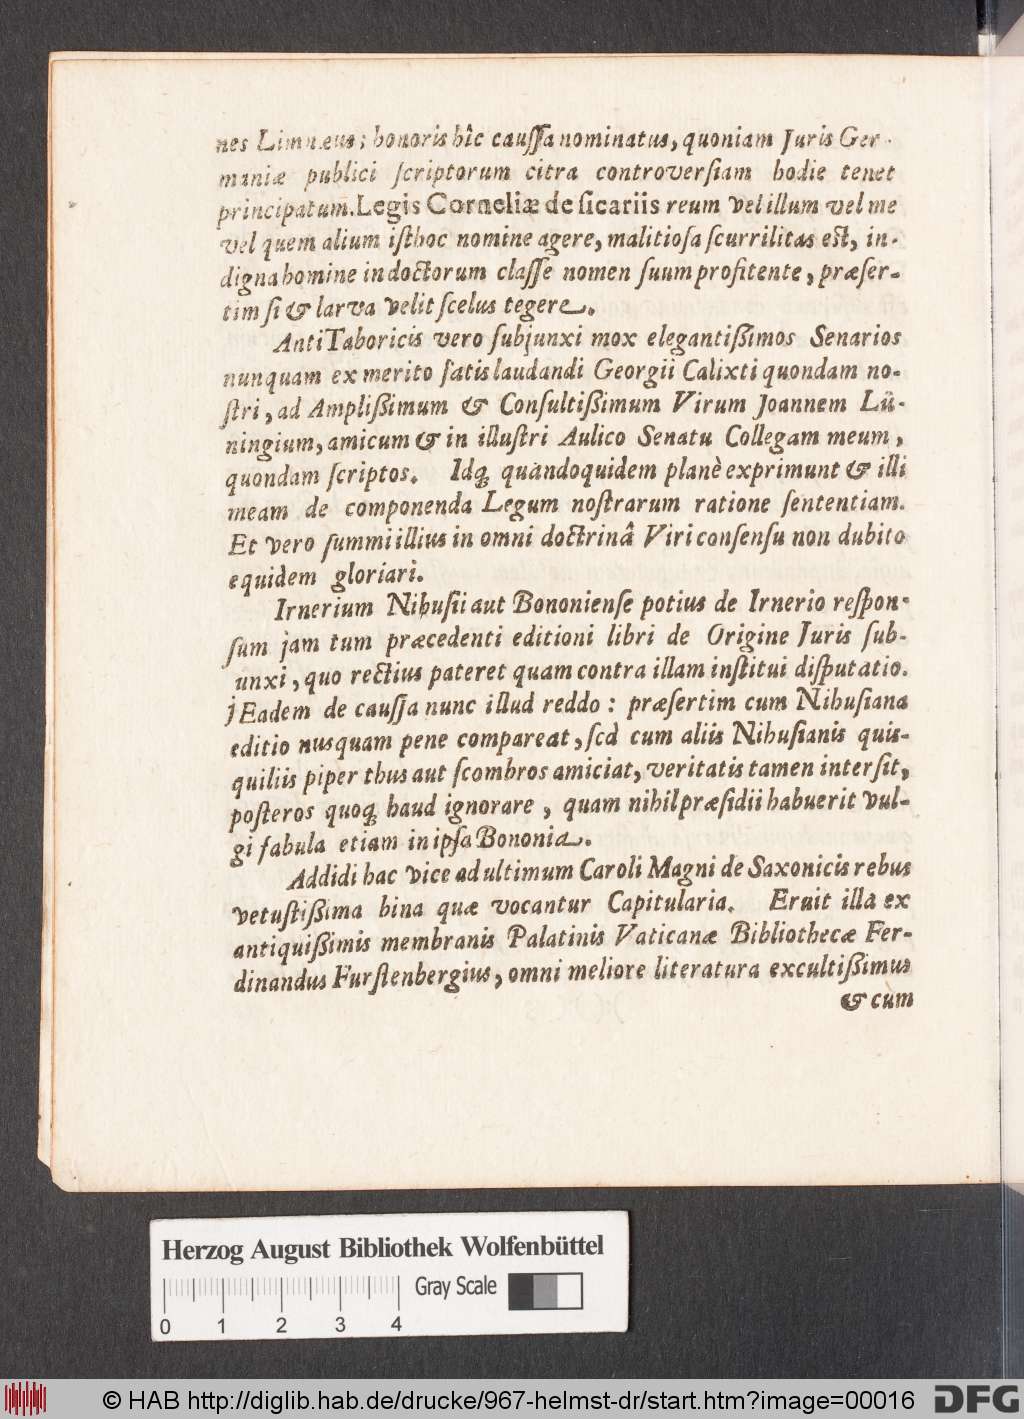 nes Limnæus; honoris hîc cauſſa nominatus, quoniam Juris Ger-
maniæ publici ſcriptorum citra controverſiam hodie tenet
principatum. Legis Corneliæ de ſicariis reum vel illum vel me
vel quem alium iſthoc nomine agere, malitioſa ſcurrilitas eſt, in-
digna homine in doctorum claſſe nomen ſuum profitente, præſer-
tim ſi & larva velit ſcelus tegere.
AntiTaboricis vero ſubjunxi mox elegantißimos Senarios
nunquam ex merito ſatis laudandi Georgii Calixti quondam no-
ſtri, ad Amplißimum & Conſultißimum Virum Joannem Lü-
ningium, amicum & in illuſtri Aulico Senatu Collegam meum,
quondam ſcriptos. Idq; quandoquidem planè exprimunt & illi
meam de componenda Legum noſtrarum ratione ſententiam.
Et vero ſummi illius in omni doctrinâ Viri conſenſu non dubito
equidem gloriari.
Irnerium Nihuſii aut Bononienſe potius de Irnerio reſpon-
ſum jam tum præcedenti editioni libri de Origine Juris ſub-
unxi, quo rectius pateret quam contra illam inſtitui diſputatio.
j Eadem de cauſſa nunc illud reddo: præſertim cum Nihuſiana
editio nusquam pene compareat, ſed cum aliis Nihuſianis quis-
quiliis piper thus aut ſcombros amiciat, veritatis tamen interſit,
poſteros quoq; haud ignorare, quam nihil præſidii habuerit vul-
gi fabula etiam in ipſa Bononia.
Addidi hac vice ad ultimum Caroli Magni de Saxonicis rebus
vetuſtißima bina quæ vocantur Capitularia. Eruit illa ex
antiquißimis membranis Palatinis Vaticanæ Bibliothecæ Fer-
dinandus Furſtenbergius, omni meliore literatura excultißimus
& cum
Herzog August Bibliothek Wolfenbüttel
Gray Scale
0 1 2 3 4
© HAB http://diglib.hab.de/drucke/967-helmst-dr/start.htm?image=00016
DFG